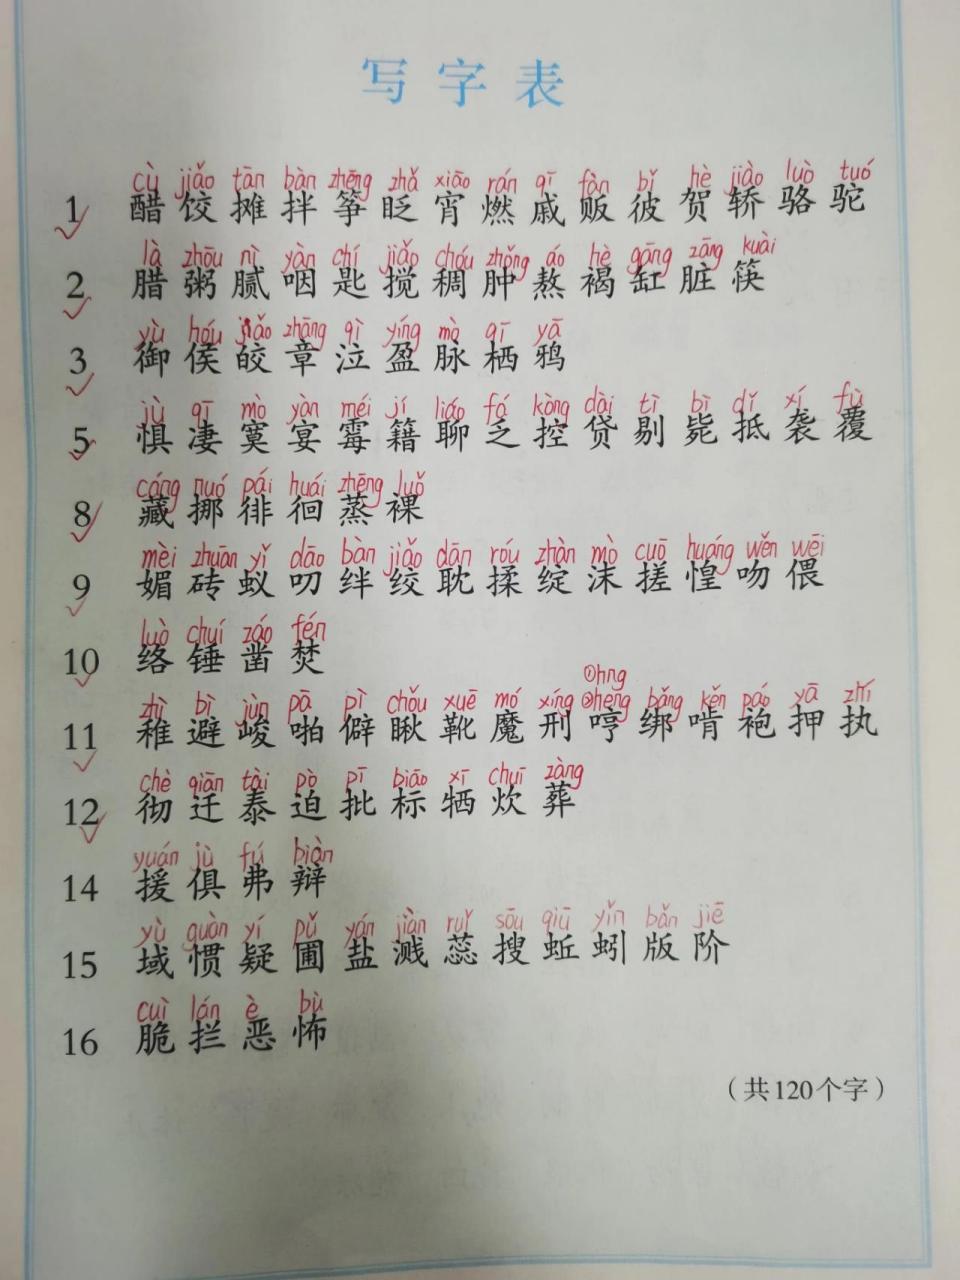 写字表
cù jiǎo tān bàn zhēng zhǎ xiāo rán qī fàn bǐ hè jiào luò tuó
1 醋 饺 摊 拌 筝 眨 宵 燃 戚 贩 彼 贺 轿 骆 驼
là zhōu nì yàn chí jiǎo chóu zhǒng áo hè gāng zāng kuài
2 腊 粥 腻 咽 匙 搅 稠 肿 熬 褐 缸 脏 筷
yù hóu jiǎo zhāng qì yíng mò qī yā
3 御 侯 皎 章 泣 盈 脉 栖 鸦
jù qī mò yàn méi jí liáo fá kòng dài tì bì dǐ xí fù
5 惧 凄 寞 宴 霉 籍 聊 乏 控 贷 剔 毙 抵 袭 覆
cáng nuó pái huái zhēng luǒ
8 藏 挪 徘 徊 蒸 裸
mèi zhuān yǐ dāo bàn jiǎo dān róu zhàn mò cuō huáng wěn wēi
9 媚 砖 蚁 叨 绊 绞 耽 揉 绽 沫 搓 惶 吻 偎
luò chuí záo fén
10 络 锤 凿 焚
①hng
zhì bì jùn pā pì chǒu xuē mó xíng ②hēng bǎng kěn páo yā zhí
11 稚 避 峻 啪 僻 瞅 靴 魔 刑 哼 绑 啃 袍 押 执
chè qiān tài pò pī biāo xī chuī zàng
12 彻 迁 泰 迫 批 标 牺 炊 葬
yuán jù fú biàn
14 援 俱 弗 辩
yù guàn yí pǔ yán jiàn ruǐ sōu qiū yǐn bǎn jiē
15 域 惯 疑 圃 盐 溅 蕊 搜 蚯 蚓 版 阶
cuì lán è bù
16 脆 拦 恶 怖
（共120个字）